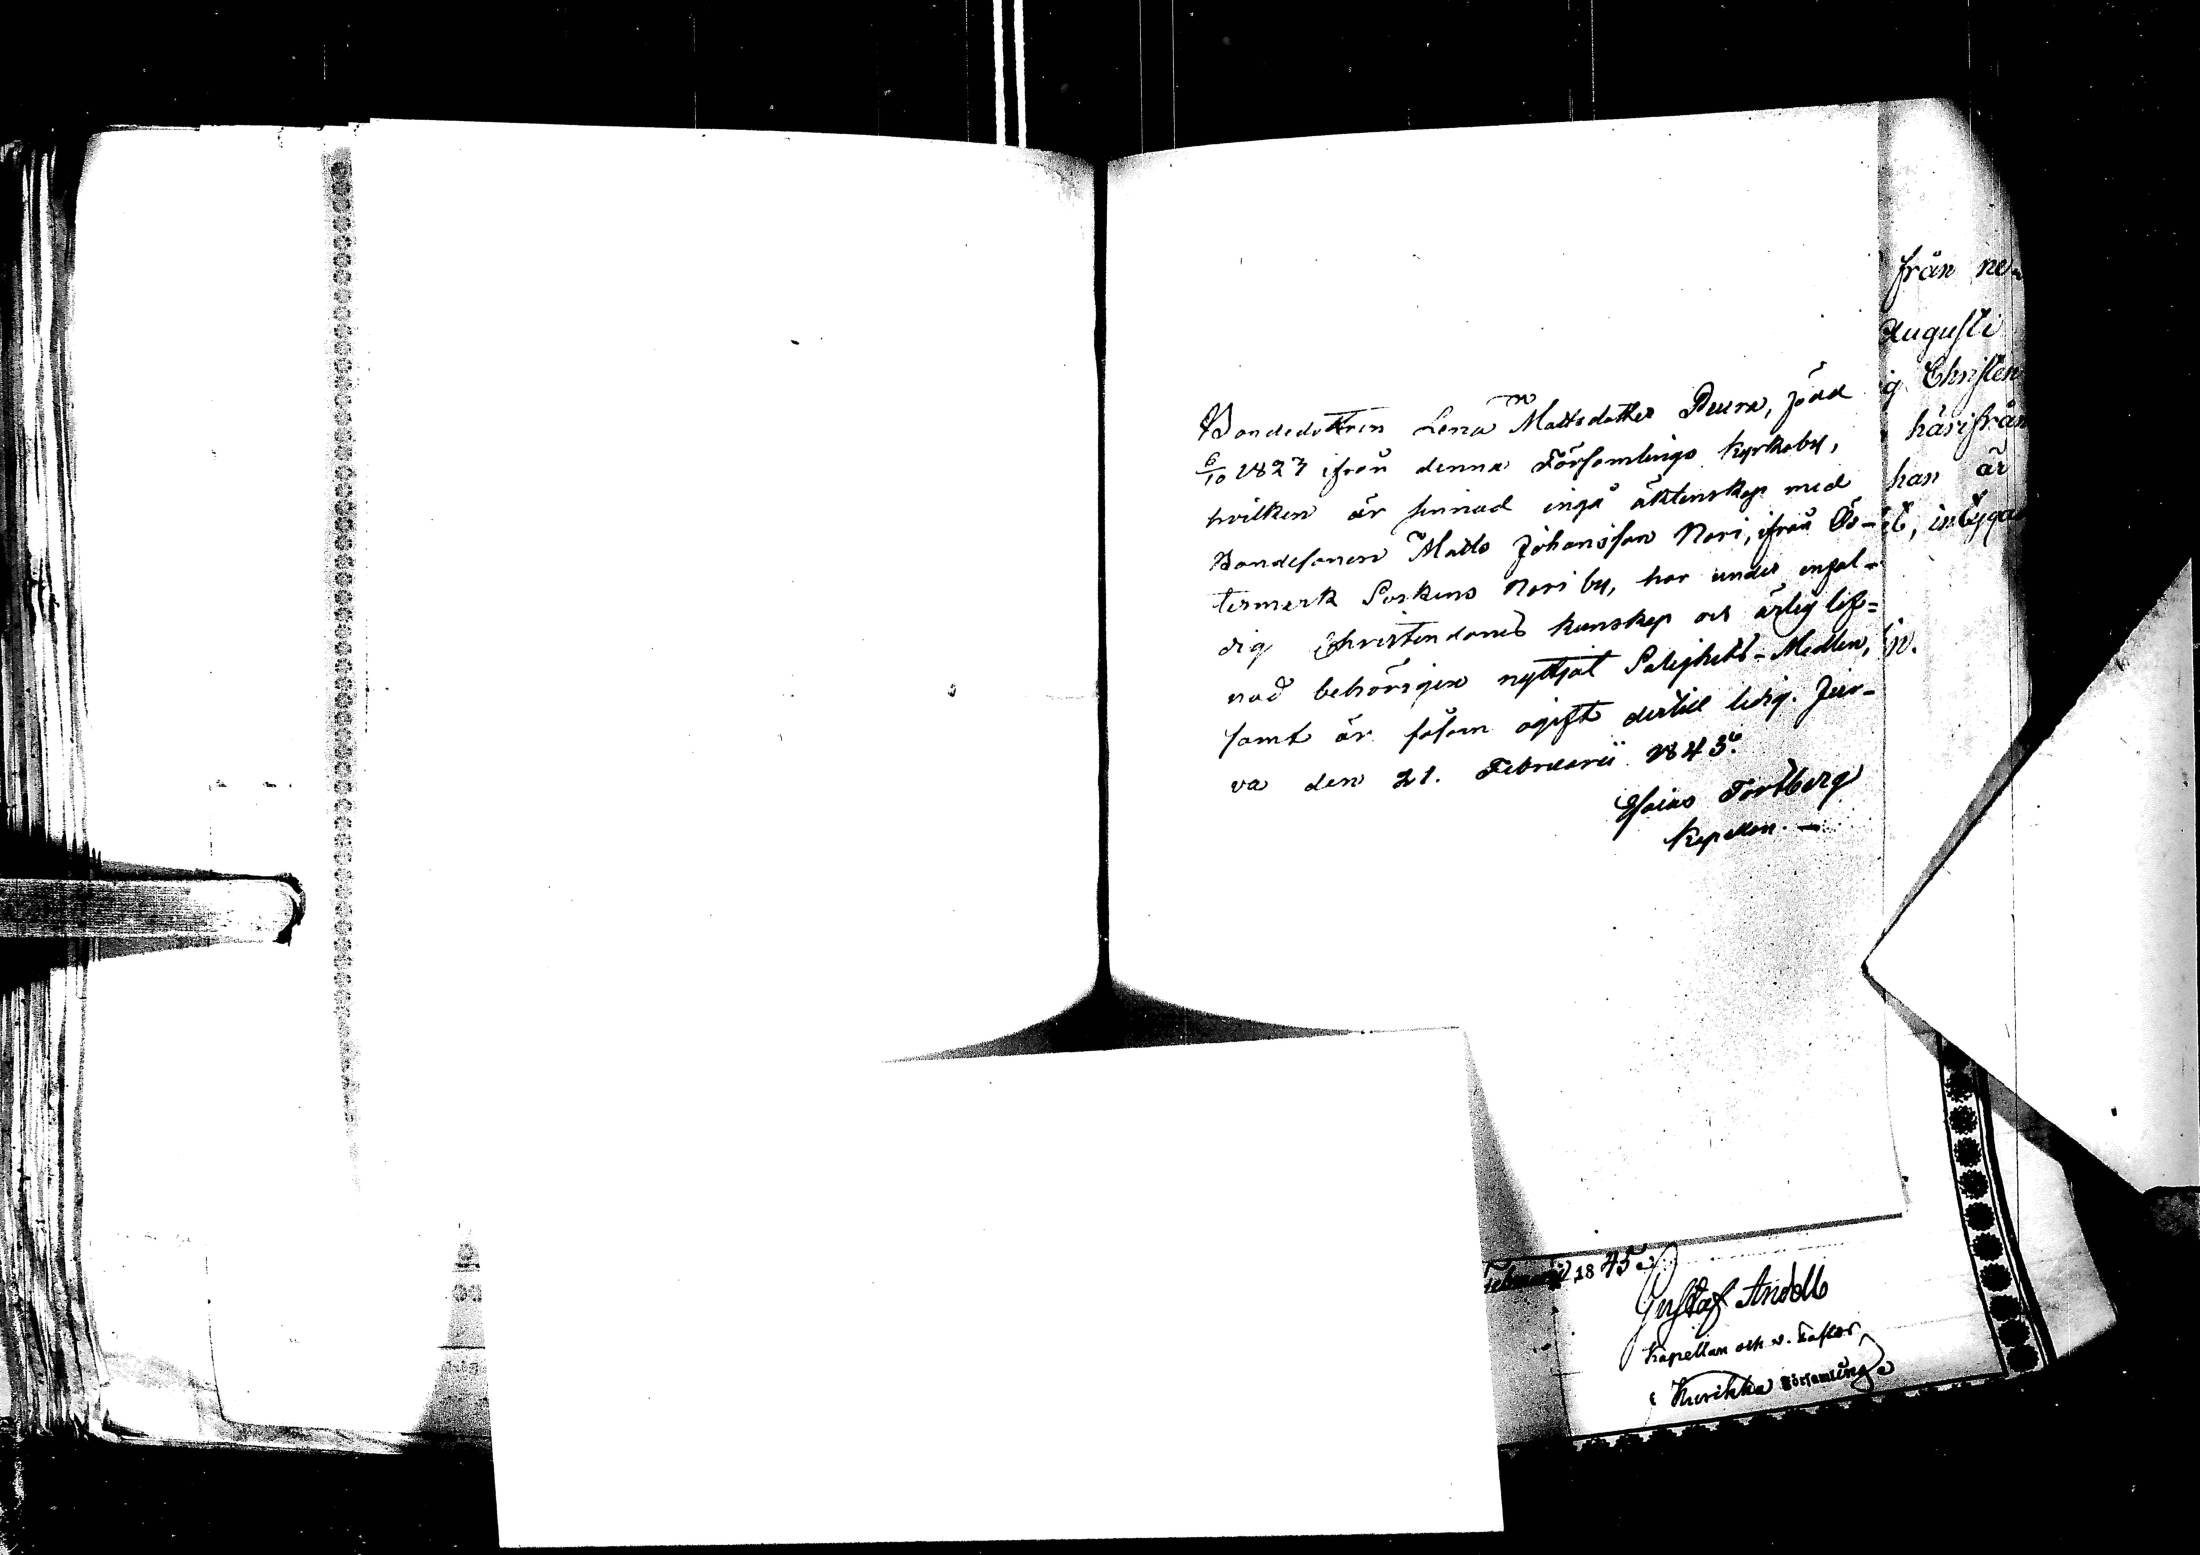 Bondedottren Lena Mattsdotter Puura, född
6/10 1827 ifrån denna Församlings Kyrkoby,
hvilken är sinnad ingå äktenskap med
Bondesonen Matts Johansson Nori, ifrån Ös-
termark Sockens Nori by, har under enfal-
dig Christendoms kunskap och ärlig lef-
nad behörigen nyttjat Salighets-Medlen,
samt är såsom ogift dertill ledig. Jur-
va den 21. Februarii 1845.
Esaias Fortberg
Kapellan.
från ne-
Augusti
g Christen
härifrån
han är
it, intygar
n.
Februarii 1845
Gustaf Andell
Kapellan och v. Pastor
Kurikka Församling